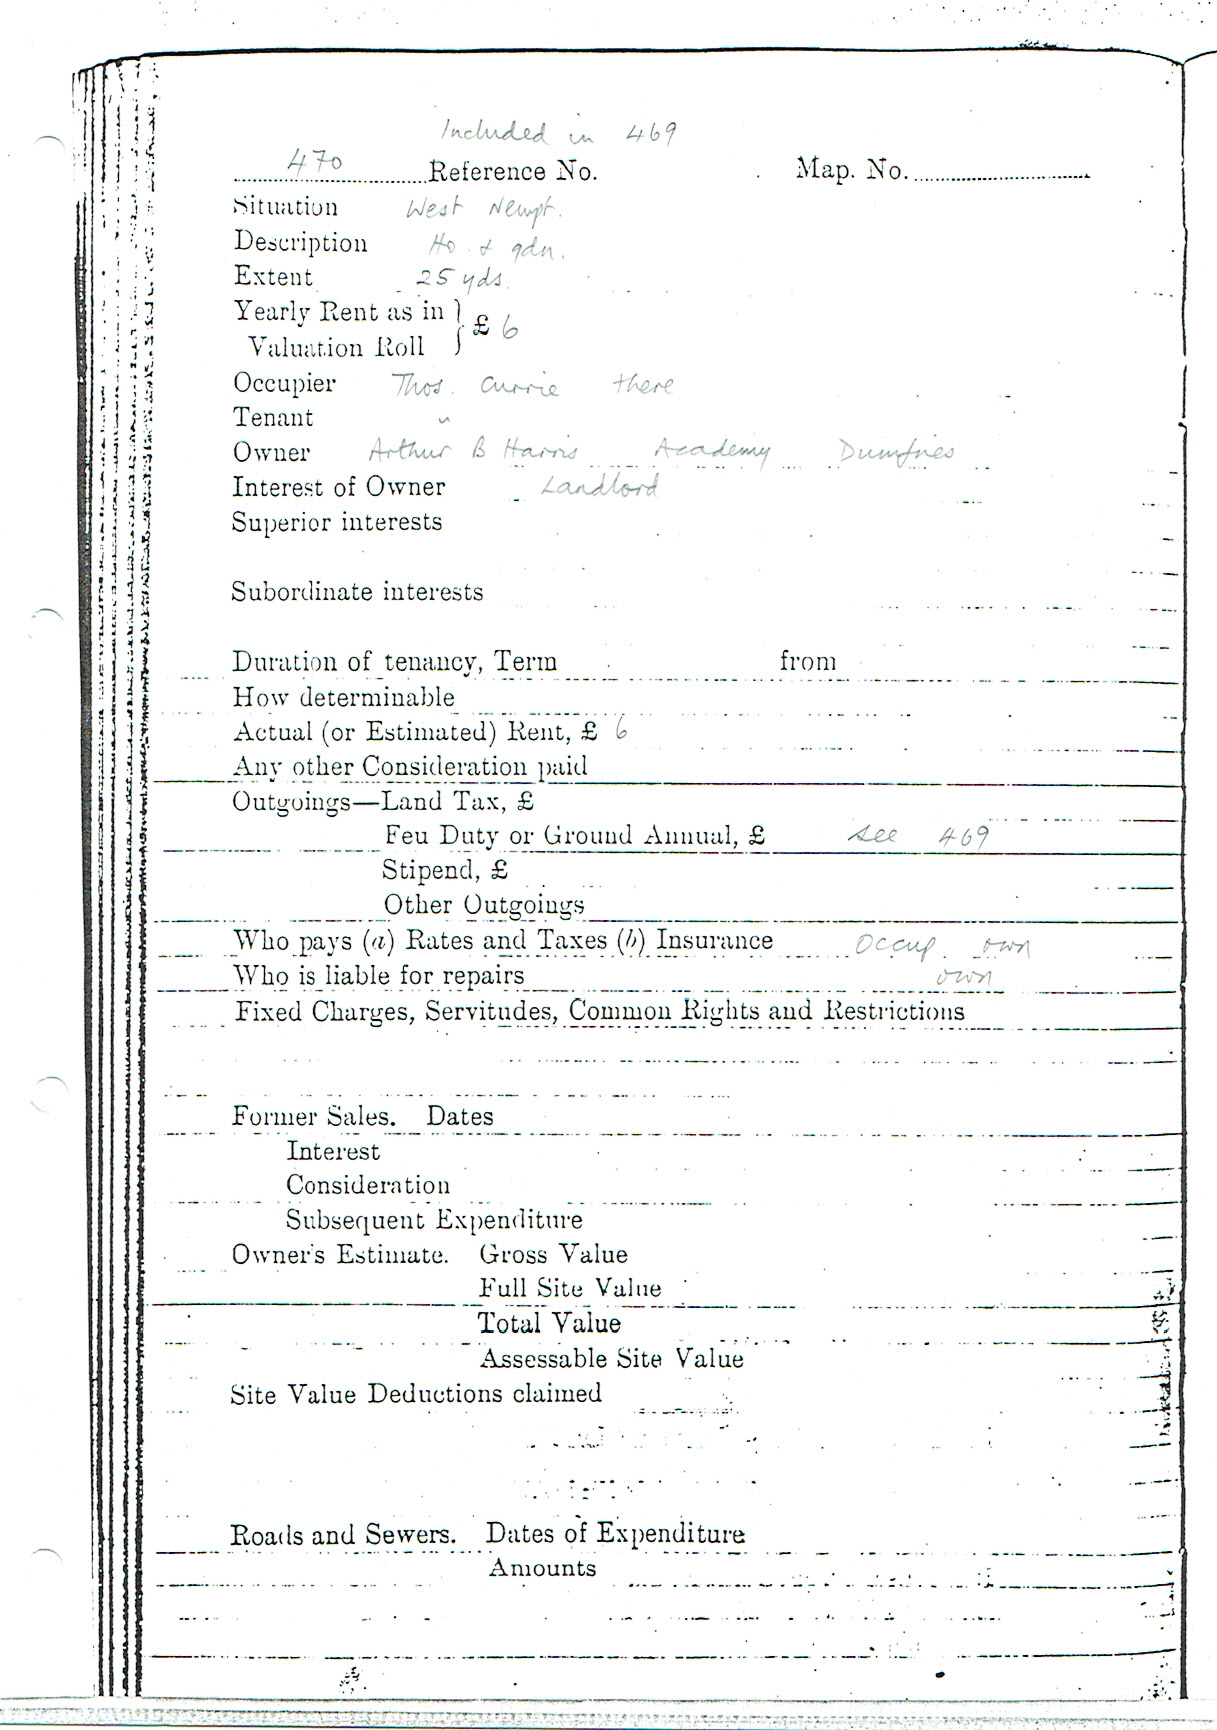 Included in 469
470 Reference No. Map. No.
Situation West Newpt.
Description Ho. & gdn.
Extent 25 yds.
Yearly Rent as in
Valuation Roll } £ 6
Occupier Thos. Currie there
Tenant "
Owner Arthur B Harris Academy Dumfries
Interest of Owner Landlord
Superior interests
Subordinate interests
Duration of tenancy, Term from
How determinable
Actual (or Estimated) Rent, £ 6
Any other Consideration paid
Outgoings—Land Tax, £
Feu Duty or Ground Annual, £ see 469
Stipend, £
Other Outgoings
Who pays (a) Rates and Taxes (b) Insurance Occup. own
Who is liable for repairs own
Fixed Charges, Servitudes, Common Rights and Restrictions
Former Sales. Dates
Interest
Consideration
Subsequent Expenditure
Owner's Estimate. Gross Value
Full Site Value
Total Value
Assessable Site Value
Site Value Deductions claimed
Roads and Sewers. Dates of Expenditure
Amounts